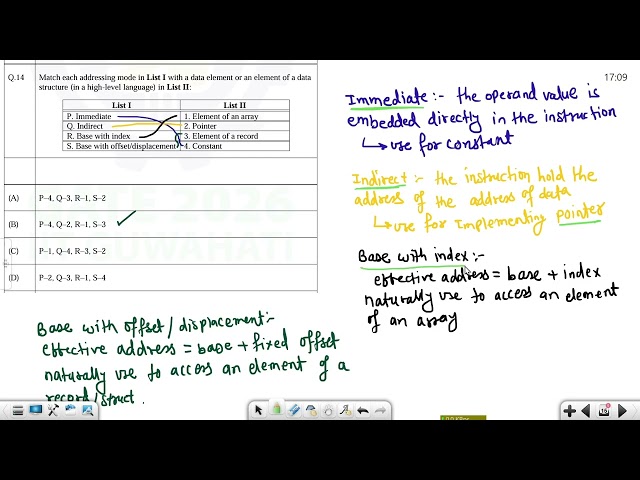 17:09
Q.14 Match each addressing mode in List I with a data element or an element of a data
structure (in a high-level language) in List II:
List I List II
P. Immediate 1. Element of an array
Q. Indirect 2. Pointer
R. Base with index 3. Element of a record
S. Base with offset/displacement 4. Constant
(A) P–4, Q–3, R–1, S–2
(B) P–4, Q–2, R–1, S–3
(C) P–1, Q–4, R–3, S–2
(D) P–2, Q–3, R–1, S–4
Immediate :- the operand value is
embedded directly in the instruction
↳ use for constant
Indirect :- the instruction hold the
address of the address of data
↳ use for implementing pointer
Base with index :-
effective address = base + index
naturally use to access an element
of an array
Base with offset / displacement :-
effective address = base + fixed offset
naturally use to access an element of a
record/struct.